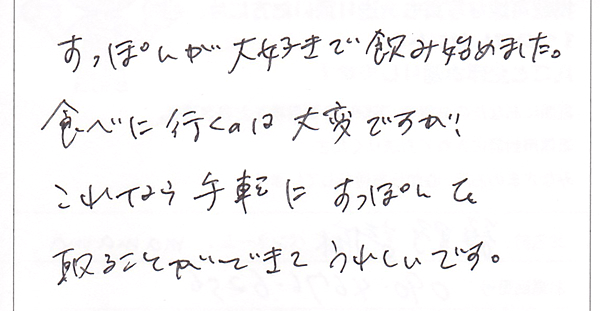 すっぽんが大好きで飲み始めました。
食べに行くのは大変ですが!
これなら手軽にすっぽんを
取ることができてうれしいです。